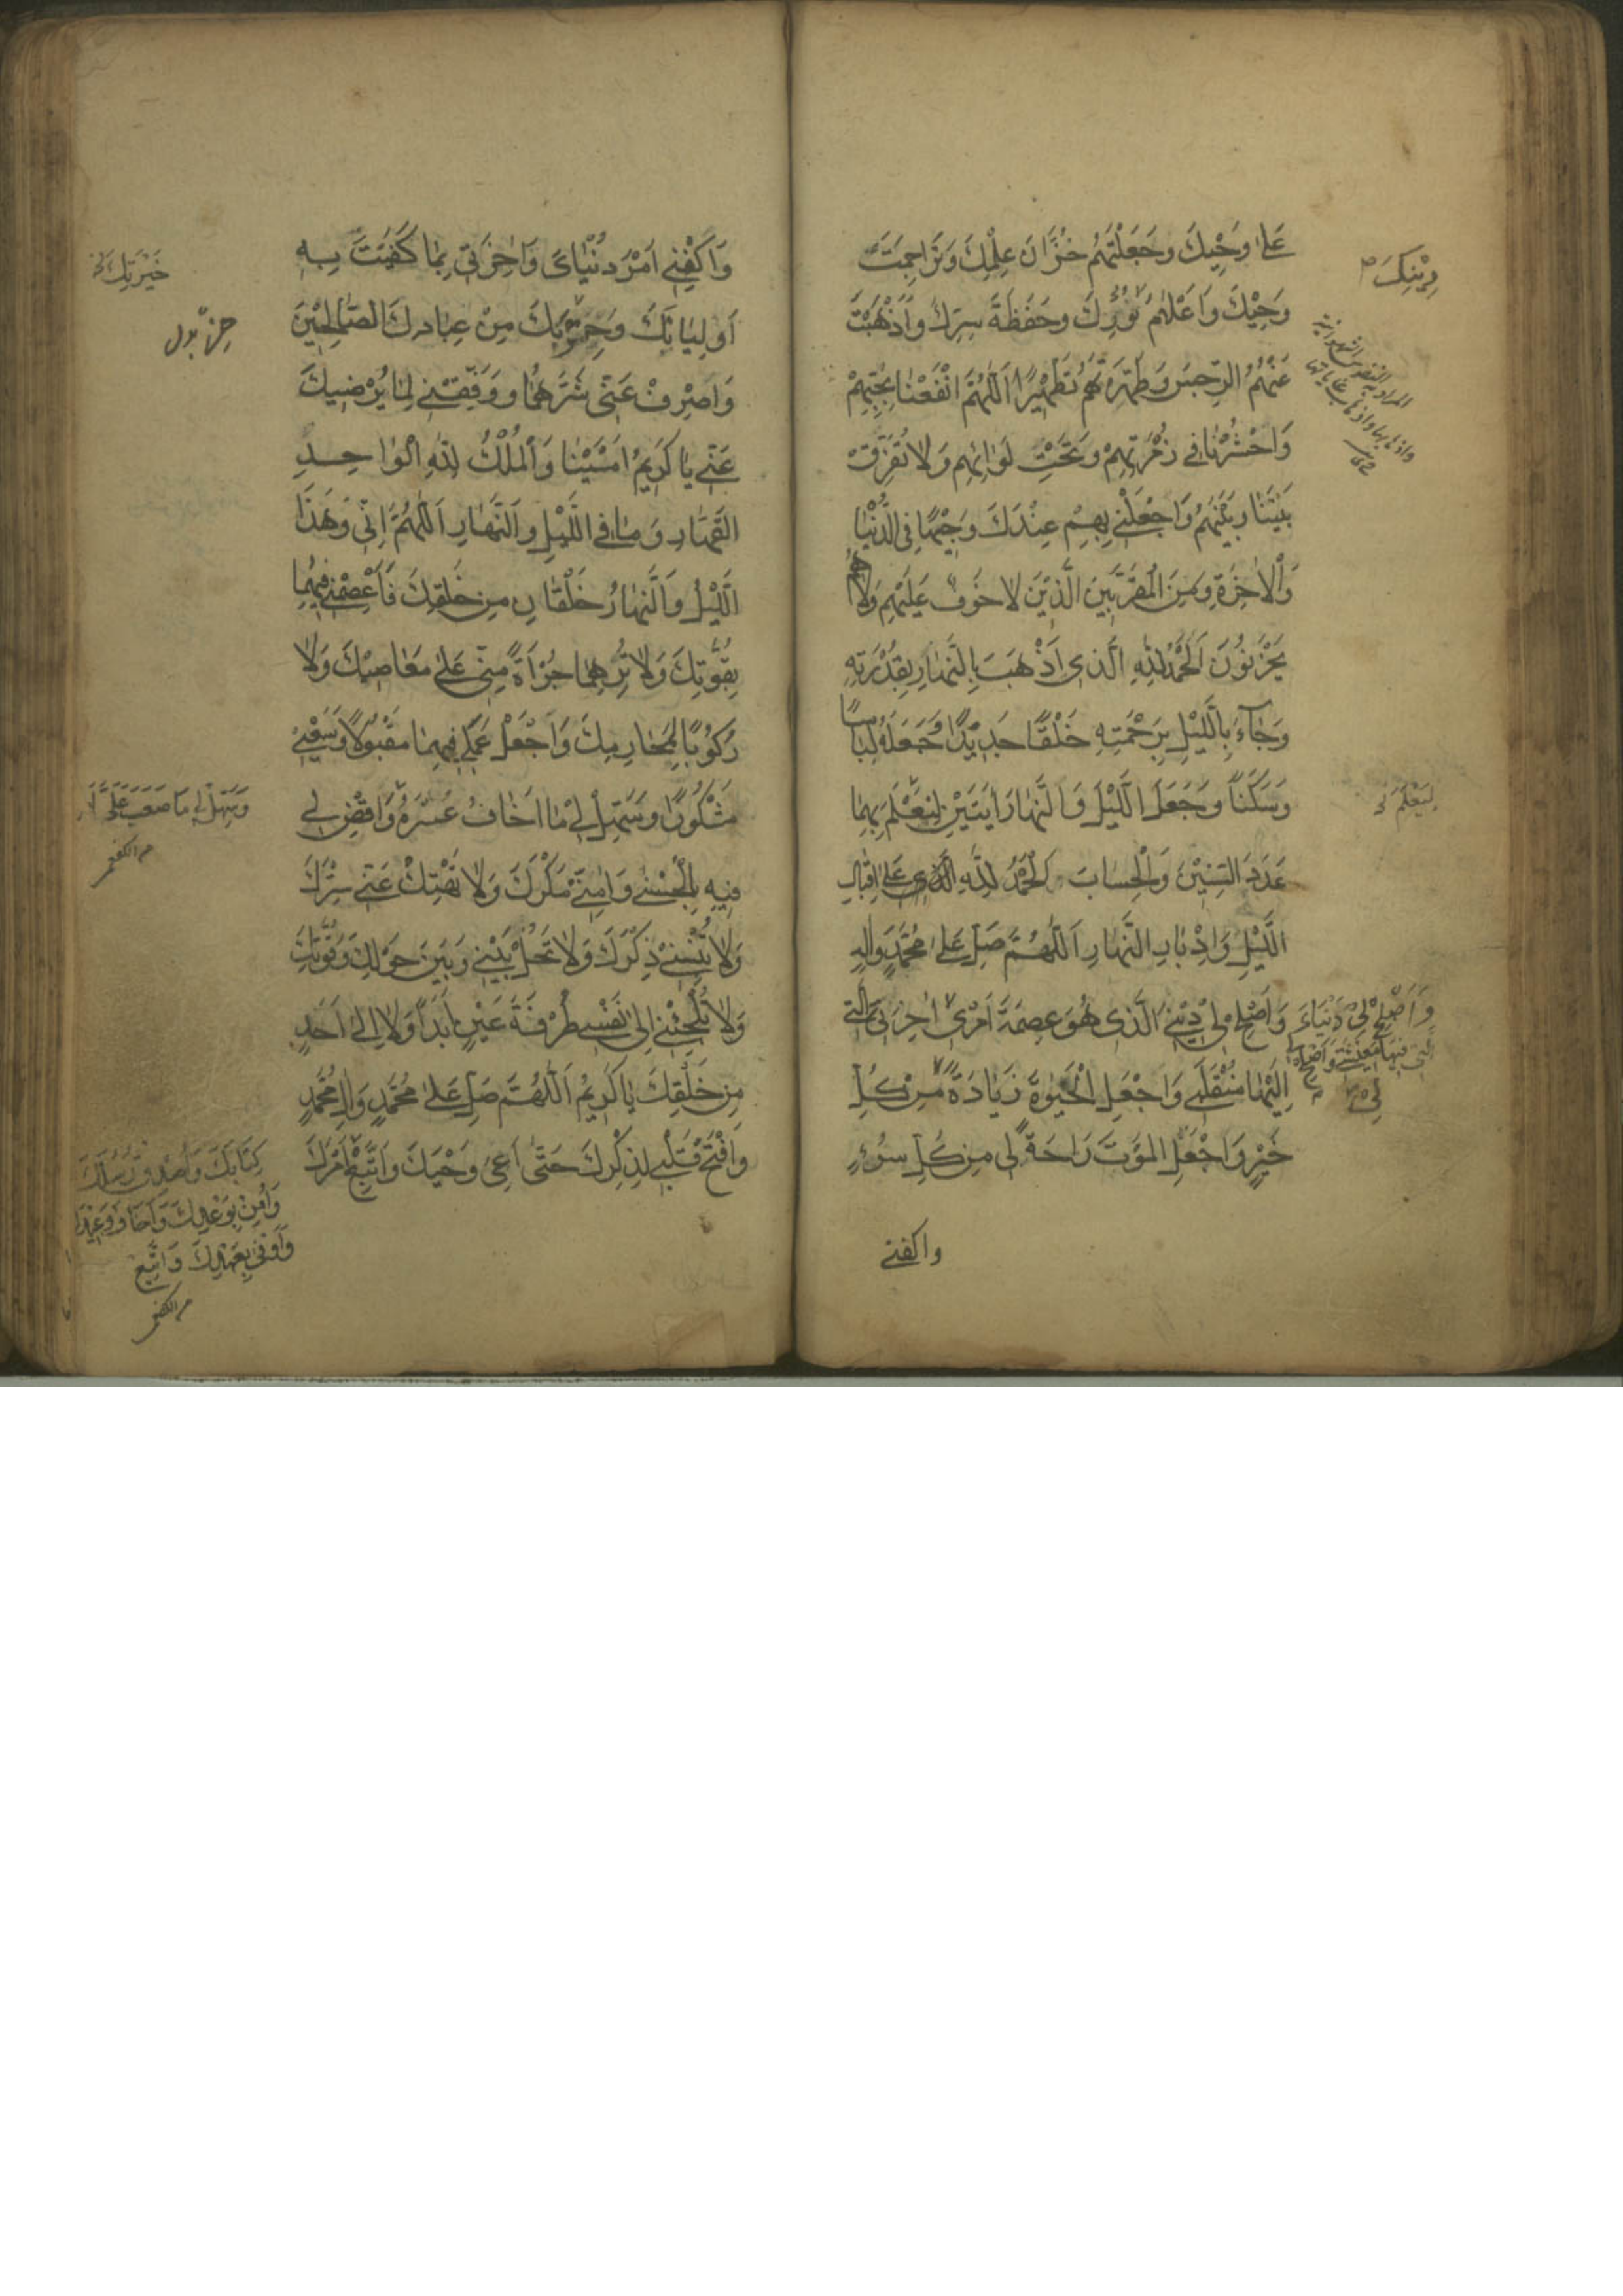 عَلىٰ وَحْيِكَ وَجَعَلْتَهُمْ خُزَّانَ عِلْمِكَ وَتَرَاجِمَةَ
وَحْيِكَ وَاَعْلامَ نُورِكَ وَحَفَظَةَ سِرِّكَ وَاَذْهَبْتَ
عَنْهُمُ الرِّجسَ وَطَهَّرْتَهُمْ تَطْهِيْرًا اَللّٰهُمَّ انْفَعْنَا بِحُبِّهِمْ
وَاحْشُرْنَا في زُمْرَتِهِمْ وَتَحْتَ لِوَائِهِم وَلا تُفَرِّقْ
بَيْنَنَا وَبَيْنَهُمْ وَاجْعَلْنِي بِهِمْ عِنْدَكَ وَجِيْهًا فِي الدُّنْيَا
وَالْاٰخِرَةِ وَمِنَ الْمُقَرَّبِيْنَ الَّذِيْنَ لا خَوْفٌ عَلَيْهِم وَلا هُمْ
يَحْزَنُونَ اَلْحَمْدُ لِلّٰهِ الَّذي اَذْهَبَ بِالنَّهَارِ بِقُدْرَتِهِ
وَجَآءَ بِاللَّيْلِ بِرَحْمَتِهِ خَلْقًا جَدِيْدًا وَجَعَلَهُ لِبَاسًا
وَسَكَنًا وَجَعَلَ اللَّيْلَ وَالنَّهَارَ اٰيَتَيْنِ لِنَعْلَمَ بِهِمَا
عَدَدَ السِّنِيْنَ وَالْحِسَابَ اَلْحَمْدُ لِلّٰهِ عَلىٰ اِقْبَالِ
اللَّيْلِ وَاِدْبَارِ النَّهَارِ اَللّٰهُمَّ صَلِّ عَلىٰ مُحَمَّدٍ وَاٰلِهِ
وَاَصْلِحْ لِي دِيْنِي الَّذي هُوَ عِصْمَةُ اَمْري اٰخِرَتي الَّتي
اِلَيْهَا مُنْقَلَبي وَاجْعَلِ الْحَيٰوةَ زِيَادَةً مِنْ كُلِّ
خَيْرٍ وَاجْعَلِ المَوْتَ رَاحَةً لي مِنْ كُلِّ سُوْءٍ
واكفنى
دِيْنِكَ
لِيَعْلَمَ
وَاَصْلِحْ لِي دُنْيَايَ
الَّتي فيها مَعِيْشَتي وَاَصْلِحْ
لي
وَاكْفِني اَمْرَ دُنْيَايَ وَاٰخِرَتي بِمَا كَفَيْتَ بِهِ
اَوْلِيَائَكَ وَ مِنْ عِبَادِكَ الصَّالِحِيْنَ
وَاصْرِفْ عَنّي شَرَّهُمَا وَوَفِّقْنِي لِمَا يُرْضِيكَ
عَنّي يَا كَرِيمُ اَمْسَيْنَا وَالْمُلْكُ لِلّٰهِ الْوَاحِدِ
القَهَّارِ وَمَا في اللَّيْلِ وَالنَّهَارِ اَللّٰهُمَّ اِنّي وَهٰذَا
اللَّيْلُ وَالنَّهَارُ خَلْقَانِ مِنْ خَلْقِكَ فَاعْصِمْني فِيْهِمَا
بِقُوَّتِكَ وَلا تُرِهِمَا جُرْأَةً مِنّي عَلىٰ مَعَاصِيْكَ وَلا
رُكُوْبًا لِمَحَارِمِكَ وَاجْعَلْ عَمَلي فِيهِمَا مَقْبُوْلًا وَسَعْيي
مَشْكُوْرًا وَسَهِّلْ لي مَا اَخَافُ عُسْرَهُ وَاقْضِ لي
فِيهِ بِالْحُسْنى وَاٰمِنّي مَكْرَكَ وَلا تَهْتِكْ عَنّي سِتْرَكَ
وَلا تُنْسِني ذِكْرَكَ وَلا تَحُلْ بَيْني وَبَيْنَ حَوْلِكَ وَقُوَّتِكَ
وَلا تُلْجِئْني اِلىٰ نَفْسي طَرْفَةَ عَيْنٍ اَبَدًا وَلا اِلىٰ اَحَدٍ
مِنْ خَلْقِكَ يَا كَرِيْمُ اَللّٰهُمَّ صَلِّ عَلىٰ مُحَمَّدٍ وَاٰلِ مُحَمَّدٍ
وَافْتَحْ قَلْبي لِذِكْرِكَ حَتّىٰ اَعِيَ وَحْيَكَ وَاَتَّبِعَ اَمْرَكَ
خَيْرَتِكَ
وَسَهِّلْ لي مَا صَعُبَ عَلَيَّ
كِتَابَكَ وَاُصَدِّقَ رُسُلَكَ
وَاُومِنَ بِوَعْدِكَ وَاَخَافَ وَعِيْدَكَ
وَاُوفي بِعَهْدِكَ وَاَتَّبِعَ